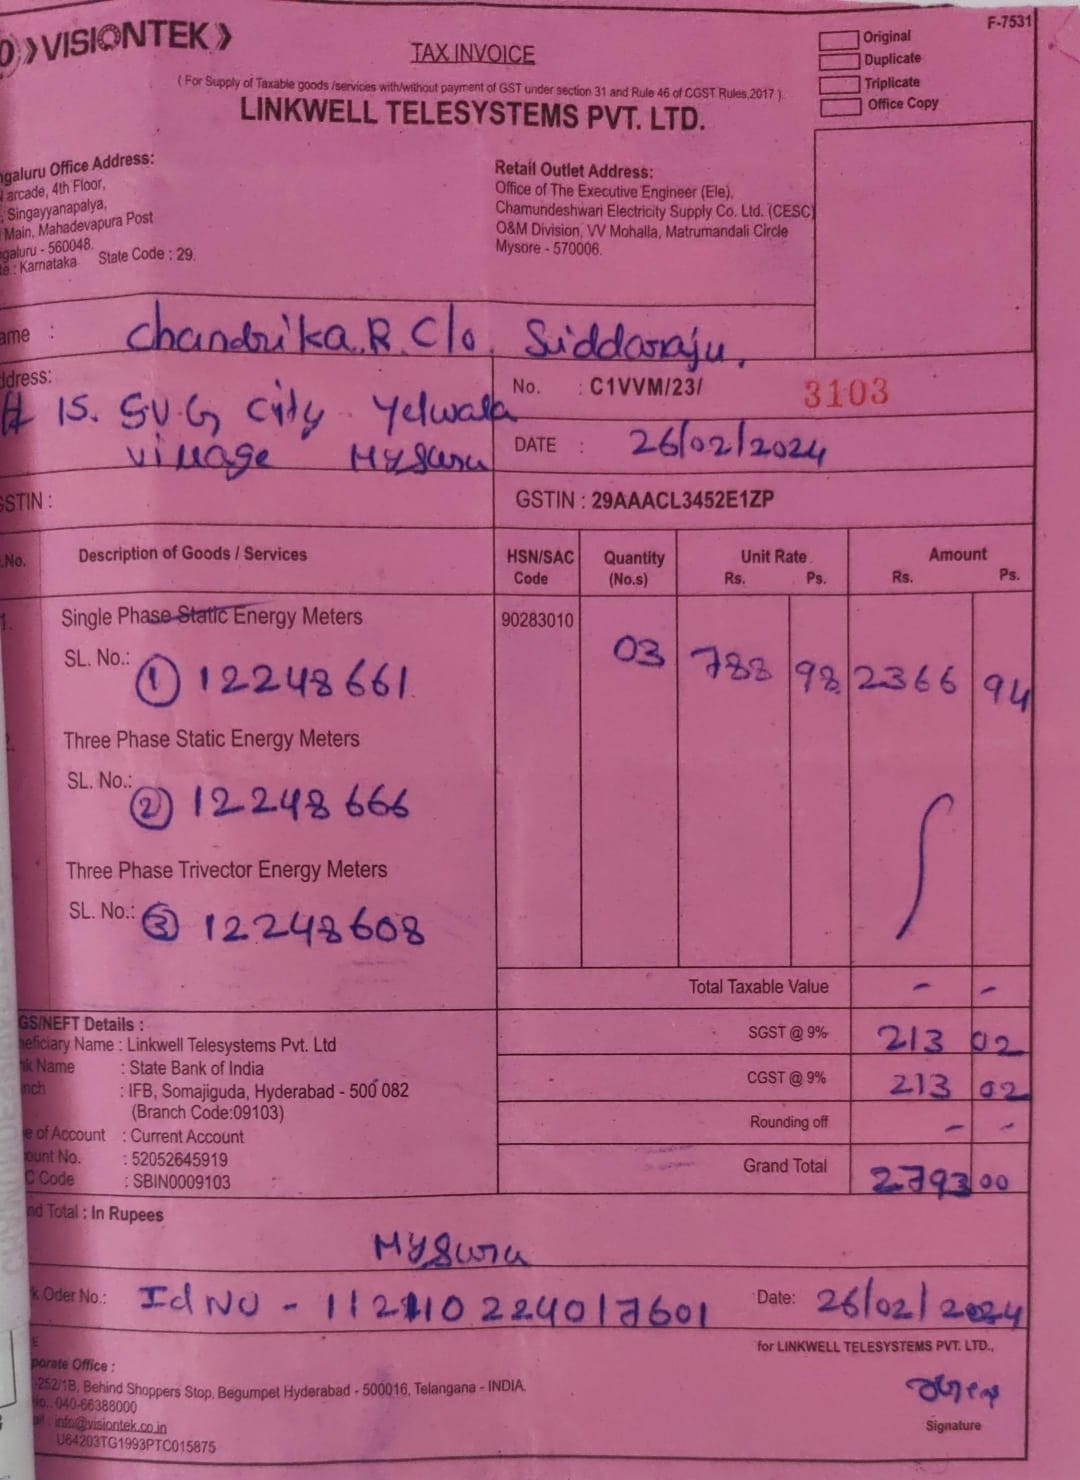 ❯VISIONTEK❯
F-7531
TAX INVOICE
Original
Duplicate
Triplicate
Office Copy
( For Supply of Taxable goods /services with/without payment of GST under section 31 and Rule 46 of CGST Rules,2017 )
LINKWELL TELESYSTEMS PVT. LTD.
ngaluru Office Address:
arcade, 4th Floor,
Singayyanapalya,
Main, Mahadevapura Post
galuru - 560048.
te.: Karnataka State Code : 29.
Retail Outlet Address:
Office of The Executive Engineer (Ele),
Chamundeshwari Electricity Supply Co. Ltd. (CESC)
O&M Division, VV Mohalla, Matrumandali Circle
Mysore - 570006.
ame : Chandrika.R. C/o. Siddaraju.
ddress:
# 15. SVG City Yelwala
village Mysuru
No. : C1VVM/23/ 3103
DATE : 26/02/2024
GSTIN :
GSTIN : 29AAACL3452E1ZP
.No. Description of Goods / Services HSN/SAC Code Quantity (No.s) Unit Rate Rs. Ps. Amount Rs. Ps.
1. Single Phase Static Energy Meters 90283010 03 788 98 2366 94
SL. No.: ① 12248661
2. Three Phase Static Energy Meters
SL. No.: ② 12248666
Three Phase Trivector Energy Meters
SL. No.: ③ 12248608
Total Taxable Value - -
SGST @ 9% 213 02
CGST @ 9% 213 02
Rounding off - -
Grand Total 2793 00
GS/NEFT Details :
neficiary Name : Linkwell Telesystems Pvt. Ltd
nk Name : State Bank of India
nch : IFB, Somajiguda, Hyderabad - 500 082
(Branch Code:09103)
e of Account : Current Account
ount No. : 52052645919
C Code : SBIN0009103
nd Total : In Rupees
Mysuru
k Oder No.: Id NO - 112110224017601 Date: 26/02/2024
E
for LINKWELL TELESYSTEMS PVT. LTD.,
porate Office :
-252/1B, Behind Shoppers Stop, Begumpet Hyderabad - 500016, Telangana - INDIA.
No.: 040-66388000
ail : info@visiontek.co.in
U64203TG1993PTC015875
Signature